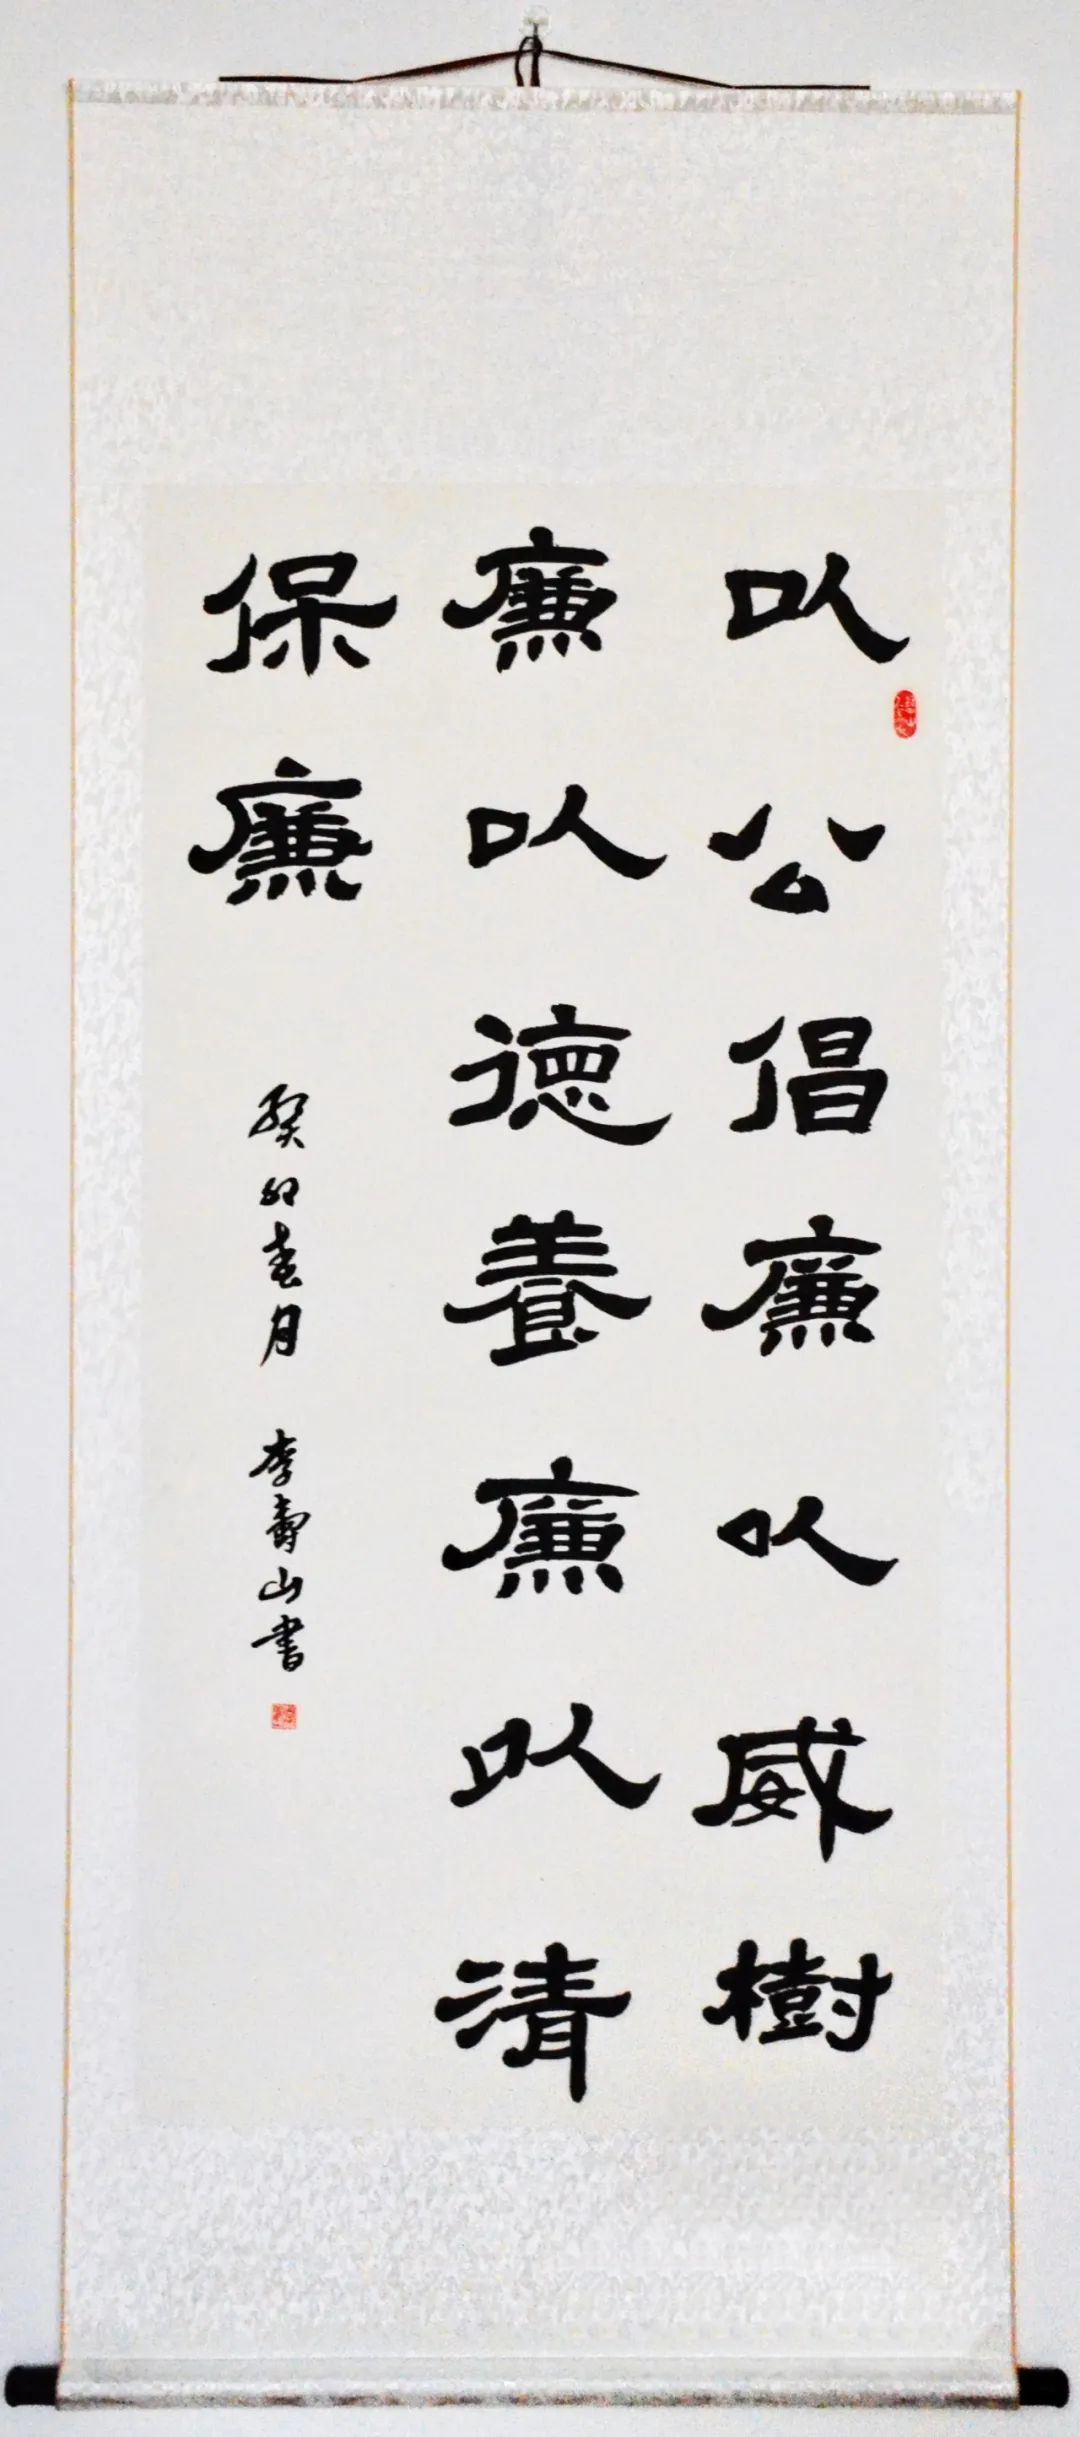 以公倡廉以威樹
廉以德養廉以清
保廉
癸卯春月 李壽山書